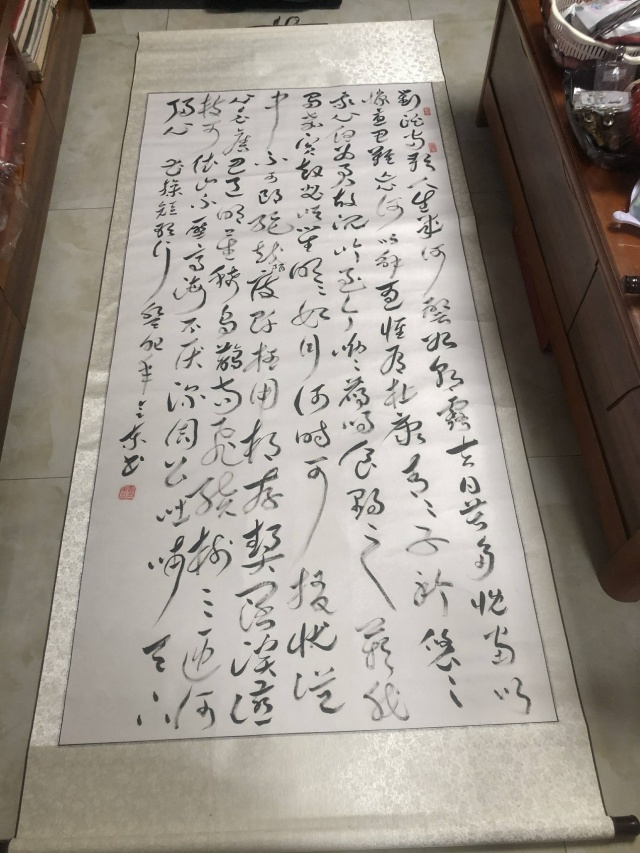 對酒當歌人生幾何譬如朝露去日苦多慨當以
慷憂思難忘何以解憂惟有杜康青々子衿悠々
我心但为君故沉吟至今呦々鹿鳴食野之苹我
有嘉賓鼓瑟吹笙明々如月何時可掇憂從
中不可断绝越陌度阡枉用相存契闊談讌
心念舊恩月明星稀烏鵲南飛繞樹三匝何
枝可依山不厭高海不厭深周公吐哺天下
歸心 曹操短歌行 年 京書